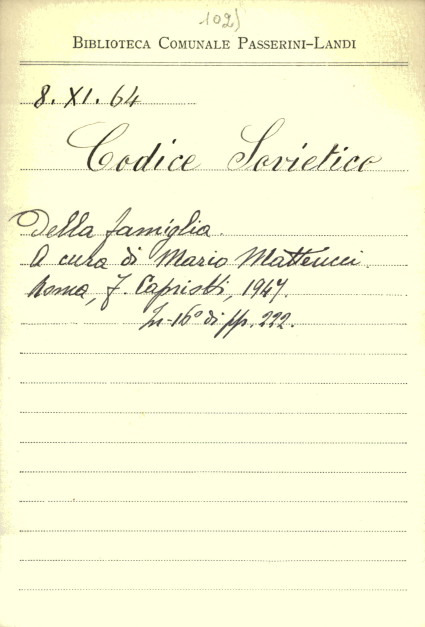 102)
BIBLIOTECA COMUNALE PASSERINI-LANDI
8. XI. 64
Codice Sovietico
Della famiglia.
A cura di Mario Matteucci.
Roma, F. Capriotti, 1947.
In-16° di pp. 222.